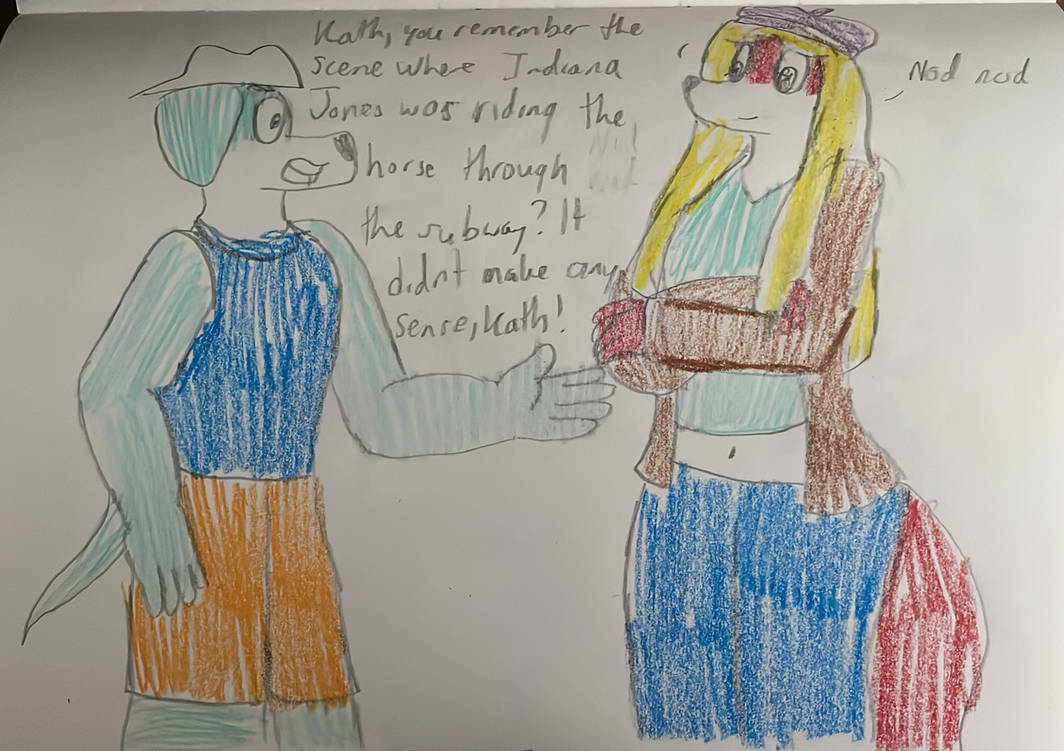 Kath, you remember the
scene where Indiana
Jones was riding the
horse through
the subway? It
didnt make any
sense, Kath!
Nod nod